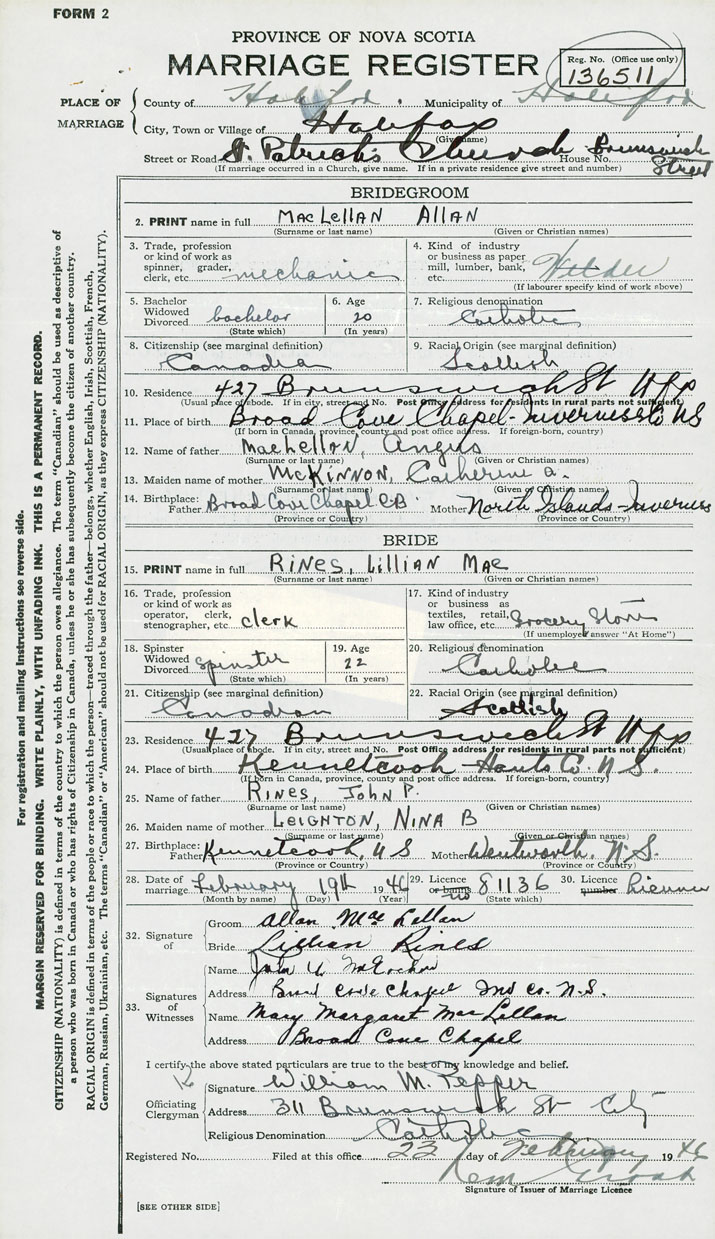 FORM 2
PROVINCE OF NOVA SCOTIA
MARRIAGE REGISTER
Reg. No. (Office use only)
136511
PLACE OF MARRIAGE
County of Halifax Municipality of Halifax
City, Town or Village of Halifax
(Give name)
Street or Road St. Patrick's Church House No. Brunswick Street
(If marriage occurred in a Church, give name. If in a private residence give street and number)
BRIDEGROOM
2. PRINT name in full MacLellan Allan
(Surname or last name) (Given or Christian names)
3. Trade, profession or kind of work as spinner, grader, clerk, etc. mechanic
4. Kind of industry or business as paper mill, lumber, bank, etc. Welder
(If labourer specify kind of work above)
5. Bachelor Widowed Divorced bachelor
(State which)
6. Age 20
(In years)
7. Religious denomination
Catholic
8. Citizenship (see marginal definition)
Canadian
9. Racial Origin (see marginal definition)
Scottish
10. Residence 427 Brunswick St Hfx
(Usual place of abode. If in city, street and No. Post Office address for residents in rural parts not sufficient)
11. Place of birth Broad Cove Chapel-Inverness Co NS
(If born in Canada, province, county and post office address. If foreign-born, country)
12. Name of father MacLellan, Angus
(Surname or last name) (Given or Christian names)
13. Maiden name of mother McKinnon, Catherine A.
(Surname or last name) (Given or Christian names)
14. Birthplace: Father Broad Cove Chapel C.B. Mother North Islands-Inverness
(Province or Country) (Province or Country)
BRIDE
15. PRINT name in full Rines, Lillian Mae
(Surname or last name) (Given or Christian names)
16. Trade, profession or kind of work as operator, clerk, stenographer, etc. clerk
17. Kind of industry or business as textiles, retail, law office, etc. Grocery Store
(If unemployed answer "At Home")
18. Spinster Widowed Divorced spinster
(State which)
19. Age 22
(In years)
20. Religious denomination
Catholic
21. Citizenship (see marginal definition)
Canadian
22. Racial Origin (see marginal definition)
Scottish
23. Residence 427 Brunswick St Hfx
(Usual place of abode. If in city, street and No. Post Office address for residents in rural parts not sufficient)
24. Place of birth Kennetcook Hants Co. N.S.
(If born in Canada, province, county and post office address. If foreign-born, country)
25. Name of father Rines, John P.
(Surname or last name) (Given or Christian names)
26. Maiden name of mother Leighton, Nina B
(Surname or last name) (Given or Christian names)
27. Birthplace: Father Kennetcook, N S Mother Wentworth, N.S.
(Province or Country) (Province or Country)
28. Date of marriage February 19th 1946
(Month by name) (Day) (Year)
29. Licence or banns no 81136
(State which)
30. Licence number License
32. Signature of
Groom Allan MacLellan
Bride Lillian Rines
33. Signatures of Witnesses
Name John
Address Broad Cove Chapel Inv Co. N.S.
Name Mary Margaret MacLellan
Address Broad Cove Chapel
I certify the above stated particulars are true to the best of my knowledge and belief.
Officiating Clergyman
Signature William M. Pepper
Address 311 Brunswick St City
Religious Denomination Catholic
Registered No. Filed at this office 23 day of February 1946
Signature of Issuer of Marriage Licence
[SEE OTHER SIDE]
For registration and mailing instructions see reverse side.
MARGIN RESERVED FOR BINDING. WRITE PLAINLY, WITH UNFADING INK. THIS IS A PERMANENT RECORD.
CITIZENSHIP (NATIONALITY) is defined in terms of the country to which the person owes allegiance. The term "Canadian" should be used as descriptive of
a person who was born in Canada or who has rights of Citizenship in Canada, unless he or she has subsequently become the citizen of another country.
RACIAL ORIGIN is defined in terms of the people or race to which the person—traced through the father—belongs, whether English, Irish, Scottish, French,
German, Russian, Ukrainian, etc. The terms "Canadian" or "American" should not be used for RACIAL ORIGIN, as they express CITIZENSHIP (NATIONALITY).